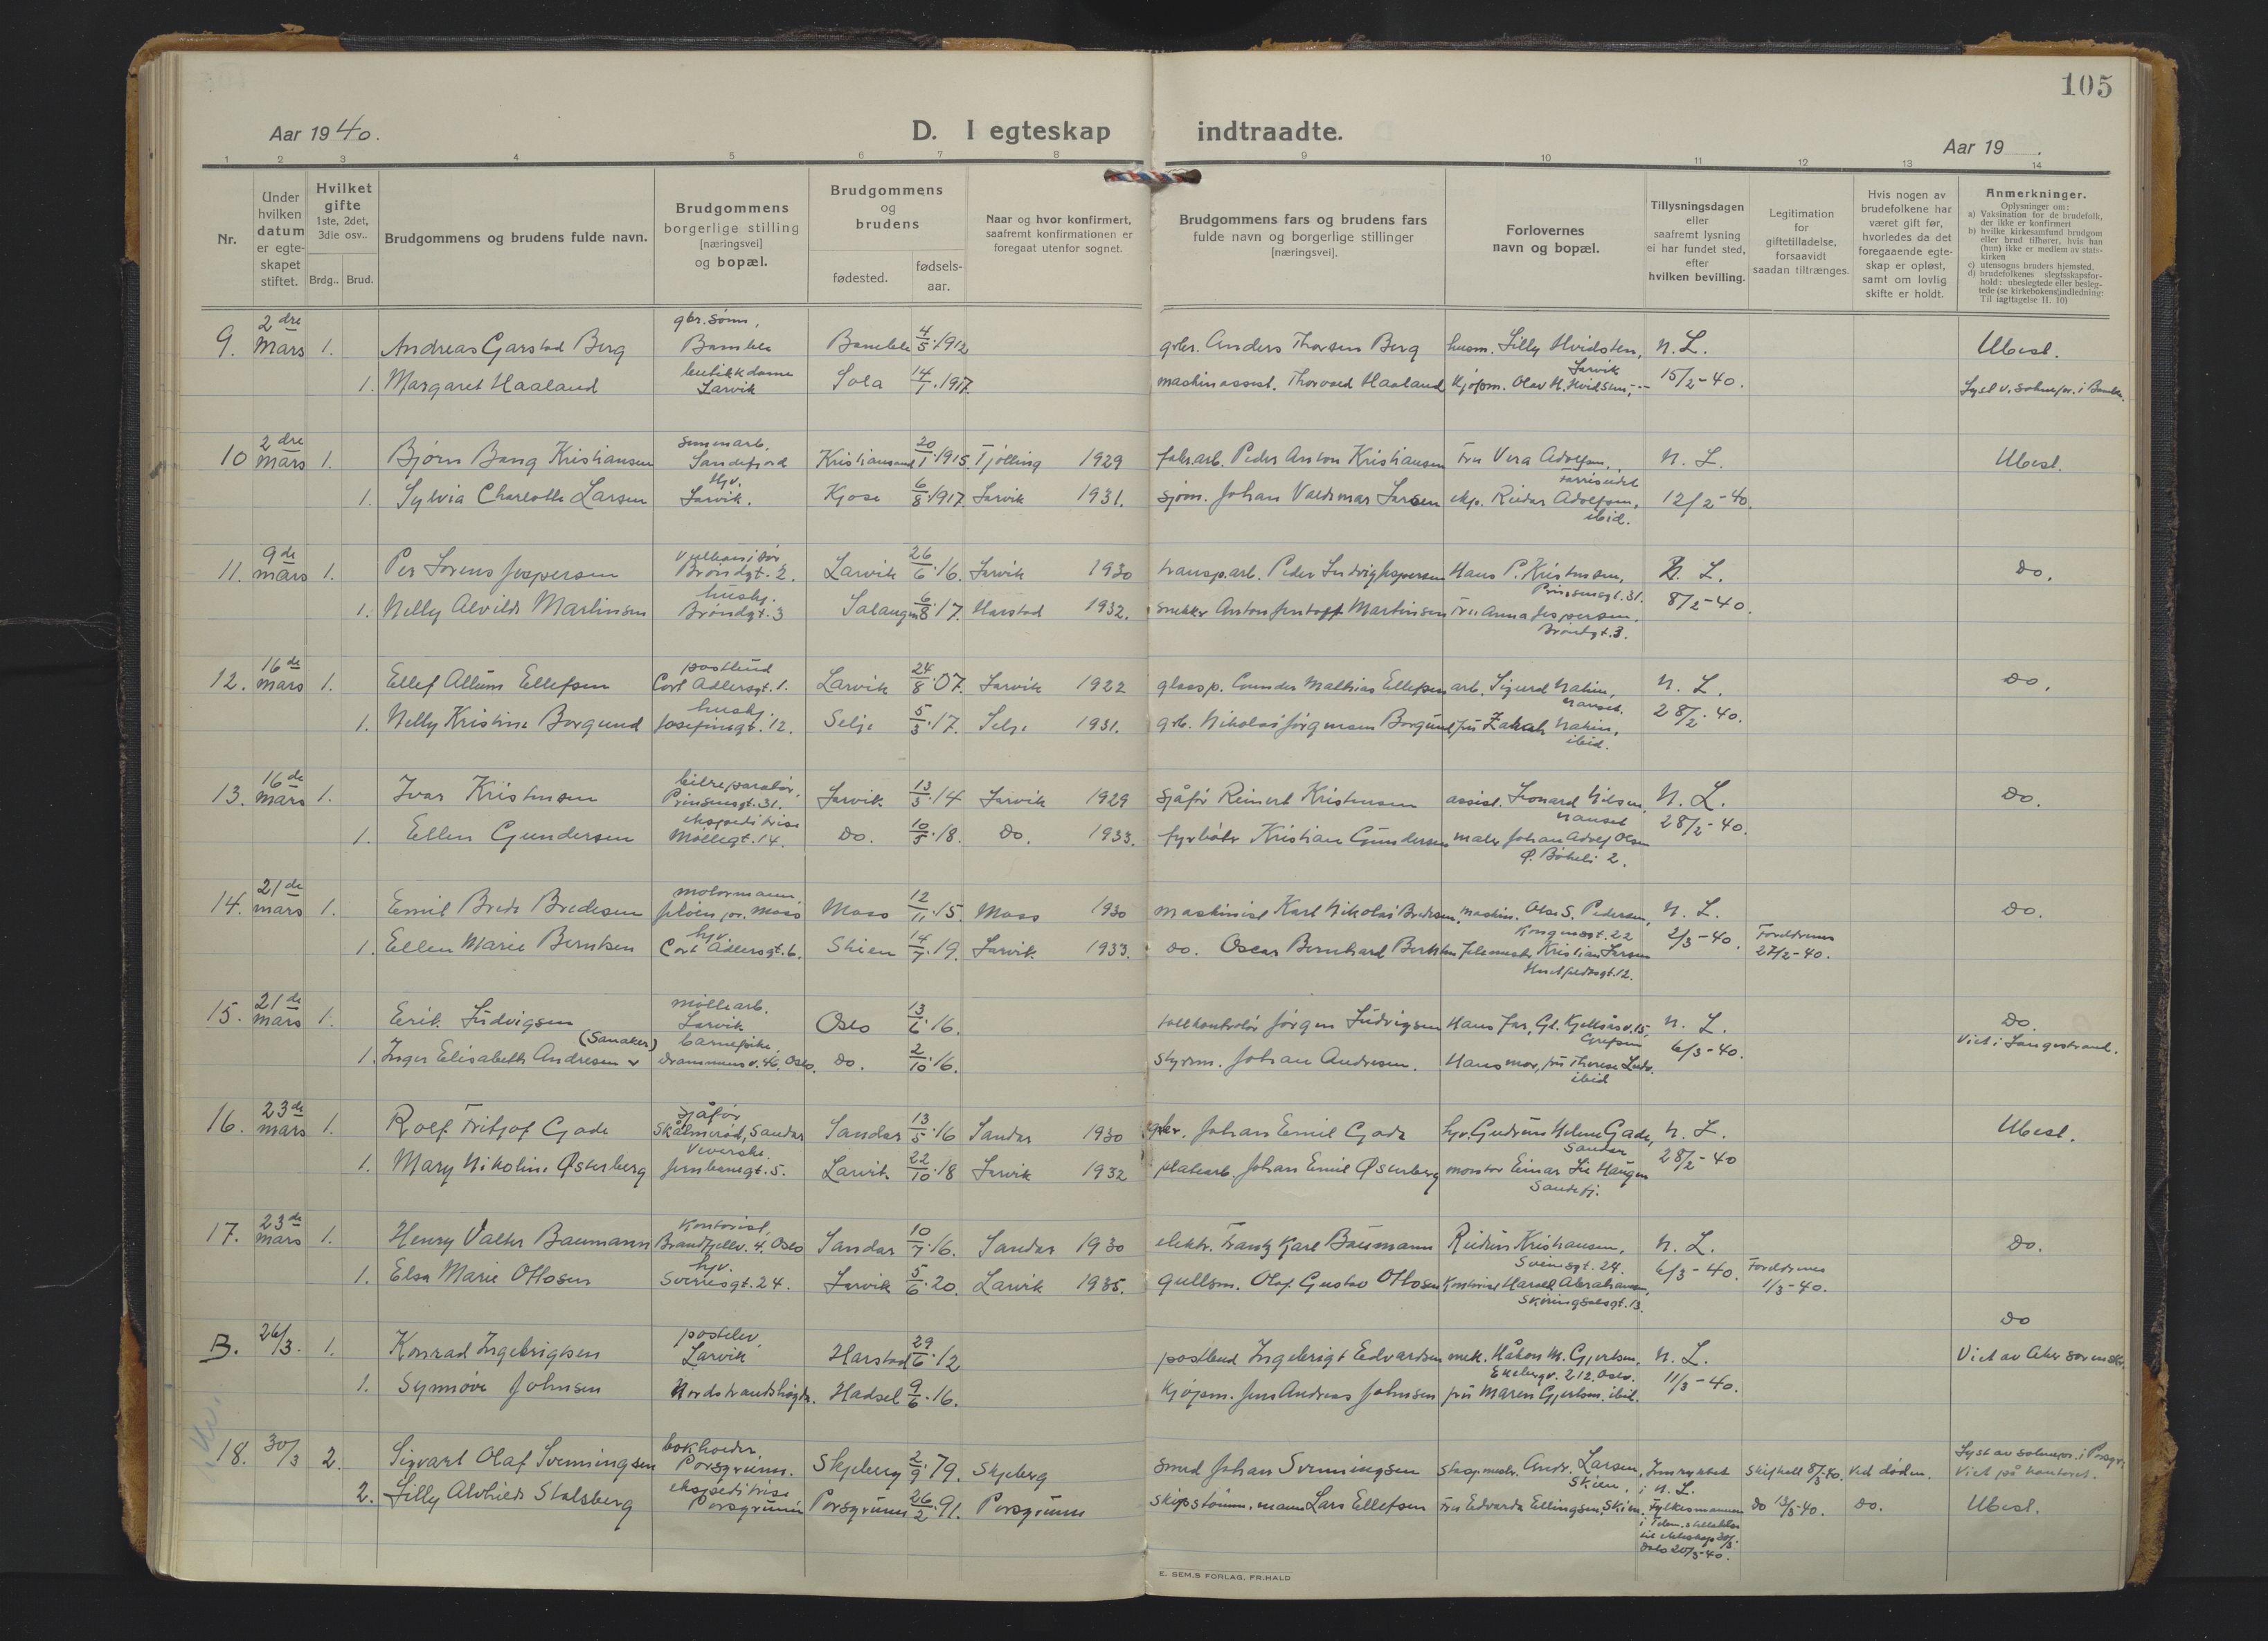 105
Aar 1940.
D. I egteskap indtraadte.
Aar 19 .
1 2 3 4 5 6 7 8 9 10 11 12 13 14
Nr.
Under hvilken datum er egte-skapet stiftet.
Hvilket gifte 1ste, 2det, 3die osv..
Brdg.. Brud.
Brudgommens og brudens fulde navn.
Brudgommens borgerlige stilling [næringsvei] og bopæl.
Brudgommens og brudens
fødested.
fødsels-aar.
Naar og hvor konfirmert, saafremt konfirmationen er foregaat utenfor sognet.
Brudgommens fars og brudens fars fulde navn og borgerlige stillinger [næringsvei].
Forlovernes navn og bopæl.
Tillysningsdagen eller saafremt lysning ei har fundet sted, efter hvilken bevilling.
Legitimation for giftetilladelse, forsaavidt saadan tiltrænges.
Hvis nogen av brudefolkene har været gift før, hvorledes da det foregaaende egte-skap er opløst, samt om lovlig skifte er holdt.
Anmerkninger.
Oplysninger om:
a) Vaksination for de brudefolk, der ikke er konfirmert
b) hvilke kirkesamfund brudgom eller brud tilhører, hvis han (hun) ikke er medlem av stats-kirken
c) utensogns bruders hjemsted.
d) brudefolkenes slegtsskapsfor-hold: ubeslegtede eller besleg-tede (se kirkebokens indledning: Til iagttagelse II. 10)
2dre gbr. sønn,
9. Mars 1. Andreas Garstad Berg Bamble Bamble 4/5.1912 gbr. Anders Thorsen Berg husm. Lilly Hvidsten, N. L. Ubesl.
butikkdame Larvik
1. Margaret Haaland Larvik Sola 14/1.1917. maskinassist. Thorvald Haaland Kjøpm. Olav H. Hvidsten, 15/2-40. Lyst v. soknepr. i Bamble.
2dre
10 mars 1. Bjørn Bang Kristiansen Sandefjord Kristiansand 20/1.1915 Tjølling 1929 fabr.arb. Peder Anton Kristiansen Fru Vera Adolfsen, N. L. Ubesl.
Hjv. Farriseidet
1. Sylvia Charlotte Larsen Larvik. Kjose 6/8.1917. Larvik 1931. sjøm. Johan Valdemar Larsen eksp. Reidar Adolfsen, 12/2-40.
ibid.
9de vulkanisør
11. mars 1. Per Sørens Jespersen Brøndgt. 2. Larvik 26/6.16. Larvik 1930 transp.arb. Peder Ludvig Jespersen Hans P. Kristensen, N. L. Do.
hushj. Prinsensgt. 31.
1. Nelly Alvilde Martinsen Brøndgt. 3 Salangen 6/8.17. Harstad 1932. snekker Anton Martinsen Fru Anna Jespersen. 8/2-40.
Brøndgt. 3.
16de postbud
12. mars 1. Ellef Allum Ellefsen Cort Adlersgt. 1. Larvik 24/8.07. Larvik 1922 glassp. Mathias Ellefsen arb. Sigurd N. L. Do.
hushj. Nanset.
1. Nelly Kristine Borgund Josefinegt. 12. Selje 5/3.17. Selje 1931. grb. Nikolai Jørgensen Borgund fru 28/2-40.
ibid.
16de bilreparatør,
13. mars 1. Ivar Kristensen Prinsensgt. 31. Larvik 13/3.14 Larvik 1929 sjåfør Reinert Kristensen assist. Leonard Nilsen, N. L. Do.
ekspeditrise Nanset
1. Ellen Gundersen Møllegt. 14. Do. 10/5.18. Do. 1933. fyrbøter Kristian Gundersen maler Johan Adolf Olsen 28/2-40.
Ø. Bøkeli 2.
21de motormann
14. mars 1. Emil Brede Bredesen Jeløen pr. Moss Moss 12/11.15. Moss 1930 maskinist Karl Nikolai Bredesen, maskin. Olse S. Pedersen, N. L. Do.
hjv. Kongensgt. 22
1. Ellen Marie Berntsen Cort Adlersgt. 6. Skien 14/7.19. Larvik 1933. do. Oscar Bernhard Berntsen Kristian Larsen 2/3-40. Foreldrenes 27/2-40.
21de møllearb.
15. mars 1. Erik Ludvigsen Larvik Oslo 13/6.16. tollkontrolør Jørgen Ludvigsen Hans far, Gl. Kjellåsv. 15, N. L. Do
(Sanaker) barnepike, Grefsen
1. Inger Elisabeth Andresen Drammensv. 46, Oslo. Do. 2/10.16. Styrm. Johan Andresen. Hans mor, fru Therese Ludv. 6/3-40. Viet i Langestrand.
ibid
23de sjåfør
16. mars 1. Rolf Fritjof Gade Skålmerød, Sandar Sandar 13/5.16 Sandar 1930 gbr. Johan Emil Gade hjv. Gudrun Helene Gade, N. L. Ubesl.
Veverske. Sandar
1. Mary Nikoline Østerberg Jernbanegt. 5. Larvik 22/10.18 Larvik 1932 platearb. Johan Emil Østerberg montør Einar Lie Haugen 28/2-40
Sandefj.
23de Kontorist,
17. mars 1. Henry Valter Baumann Brandfjellv. 4, Oslo Sandar 10/7.16. Sandar 1930 elektr. Frantz Karl Baumann Reidun Kristiansen, N. L. Do.
hjv. Sveinsgt. 24.
1. Elsa Marie Ottosen Sverresgt. 24. Larvik 5/6.20. Larvik 1935. gullsm. Olaf Gustav Ottosen Kontorist Harald Abrahamsen, 6/3-40. Foreldrenes 1/3-40.
Skiringsalsgt. 13.
Do
26/3. postelev,
B. 1. Konrad Ingebrigtsen Larvik Harstad 29/6.12 postbud Ingebrigt Edvardsen mek. Håkon M. Gjertsen, N. L. Viet av Aker sorenskr.
Ekebergv. 212, Oslo.
1. Synnøve Johnsen Nordstrandshøgda. Hadsel 9/6.16. Kjøpm. Jens Andreas Johnsen fru Maren Gjertsen, ibid. 11/3-40.
bokholder
18. 30/3 2. Sigvart Olaf Svenningsen Porsgrunn. Skjeberg 2/9.79. Skjeberg smed Johan Svenningsen Andr. Larsen, Innrykket Skifteatt 8/3-40. Ved døden. Lyst av soknepr. i Porsgr. Viet på kontoret.
ekspeditrise Skien, i N. L.
2. Lilly Alvhilde Stalsberg Porsgrunn Porsgrunn 26/2.91. Porsgrunn Skipstømm.mann Lars Ellefsen Fru Edvarda Ellingsen, Skien. Fylkesmannen Do 13/3-40. Do. Ubesl.
i Telem. s tillatelse
til ekteskap
Oslo 20/3-40.
E. SEM.S FORLAG, FR.HALD